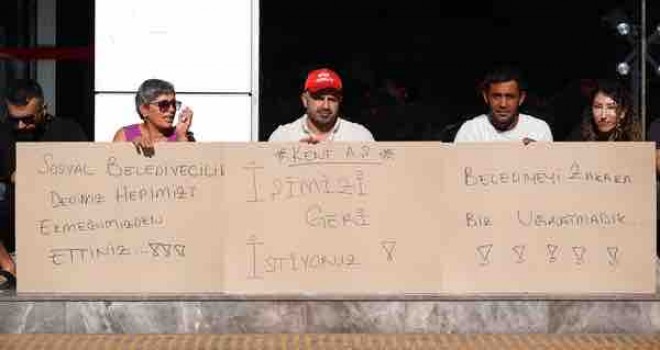 SOSYAL BELEDİYECİLİK
DEDİNİZ HEPİMİZİ
EKMEĞİMİZDEN
ETTİNİZ...!!!
*KENT A.Ş*
İŞİMİZİ
GERİ
İSTİYORUZ !
BELEDİYEYİ ZARARA
BİZ UĞRATMADIK...
! ! ! ! !